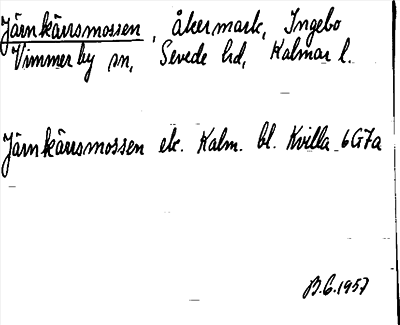 Järnkärrsmossen, åkermark, Ingebo
Vimmerby sn, Sevede hd, Kalmar l.
Järnkärrsmossen ek. Kalm. bl. Kvilla 6G7a
B.G.1957